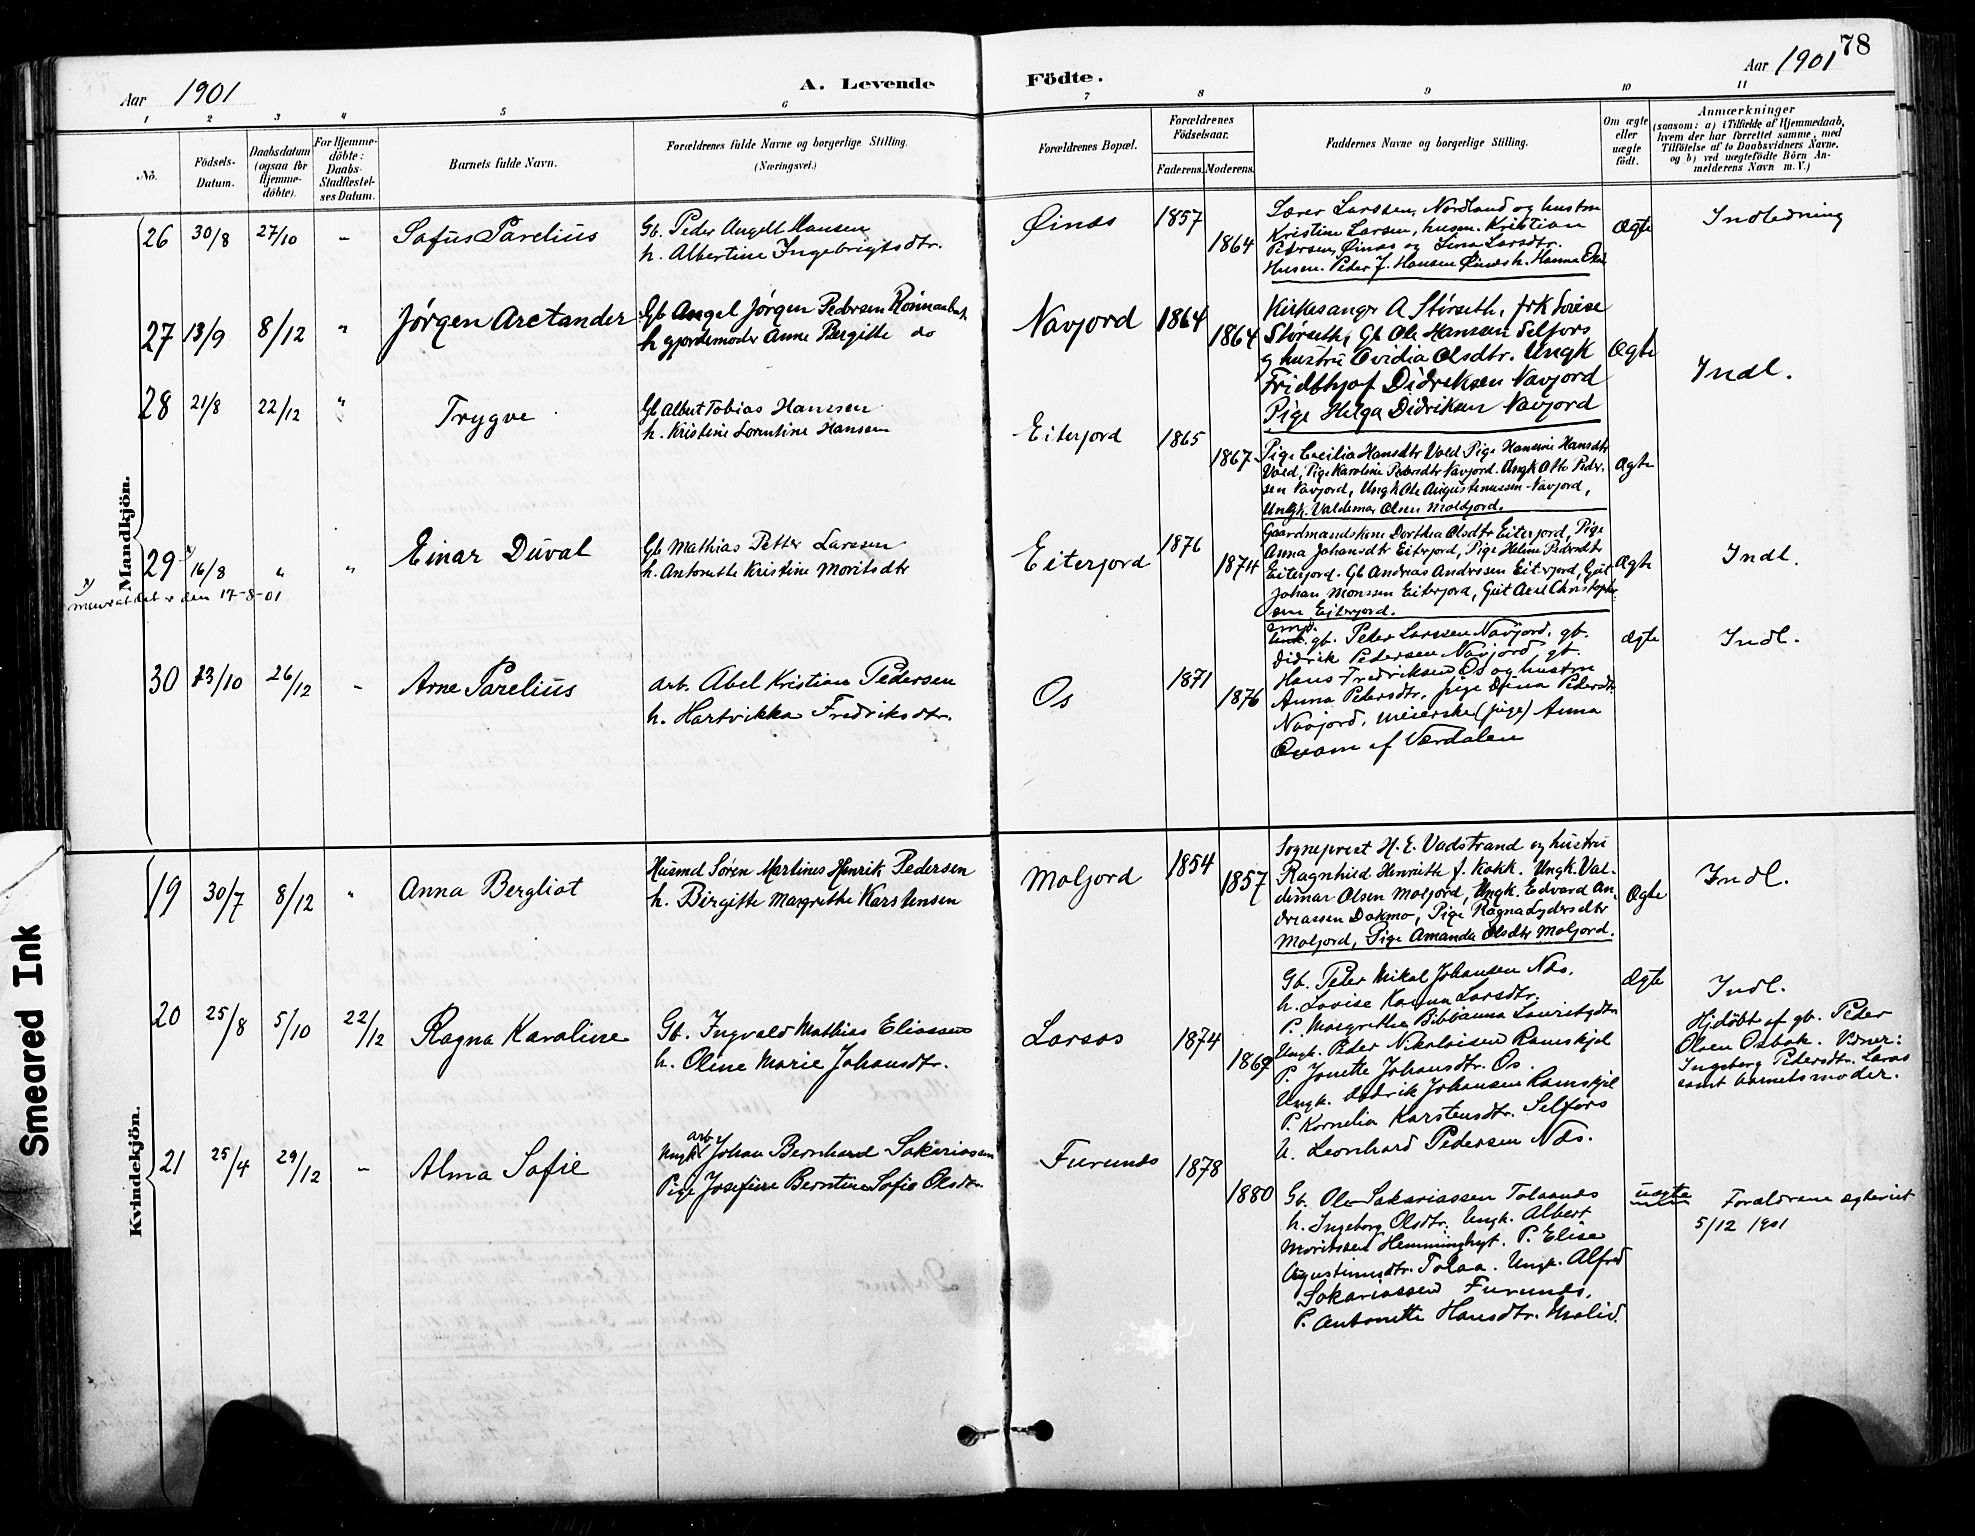 78
Aar 1901
A. Levende
Födte.
Aar 1901
1 2 3 4 5 6 7 8 9 10 11
No.
Födsels-
Datum.
Daabsdatum
(ogsaa for
Hjemme-
döbte).
For Hjemme-
döbte:
Daabs-
Stadfæstel-
ses Datum.
Barnets fulde Navn.
Forældrenes fulde Navne og borgerlige Stilling.
(Næringsvei.)
Forældrenes Bopæl.
Forældrenes
Födselsaar.
Faderens. Moderens.
Faddernes Navne og borgerlige Stilling.
Om ægte
eller
uægte
födt.
Anmærkninger
(saasom: a) i Tilfælde af Hjemmedaab,
hvem der har forrettet samme, med
Tilföielse af to Daabsvidners Navne,
og b) ved uægtefödte Börn An-
melderens Navn m. V.)
Mandkjön.
26 30/8 27/10 –
Sofus Parelius
Gb. Peder Angell Hansen
h. Albertine Ingebrigtsdtr.
Øinæs
1857
1864
Lærer Larssen, Nordland og hustru
Kristine Larsen, husm. Kristian
Pedersen, Øinæs og Lina Larsdtr.
Husm. Peder J. Hansen Øinæs h. Hanna
Ægte
Indledning
27 13/9 8/12 "
Jørgen Arctander
Gb Angel Jørgen Pedersen
h gjordemoder Anne Bergitte do
Navjord
1864
1864
Kirkesangr A Størseth, frk Lovise
Størseth, Gb Ole Hansen Selfors
og hustru Ovidia Olsdtr. Ungk
Fridthjof Didriksen Navjord
Pige Helga Didriksen Navjord
Ægte
Indl.
28 21/8 22/12 "
Trygve
Gb Albert Tobias Hanssen
h. Kristine Lorentine Hansen
Eiterjord
1865
1867
Pige Cecilia Hansdtr Vold Pige Hansine Hansdtr
Vold, Pige Karoline Pedersdtr Navjord. Ungk Otto Peder-
sen Navjord, Ungk Ole Augustinussen Navjord,
Ungk. Valdemar Olsen Moldjord.
Ægte
29 16/8 " "
Einar Duval
Gb Mathias Petter Larssen
h. Antonette Kristine Moritsdtr
Eiterjord
1876
1874
Gaardmandskone Dorthea Olsdtr Eiterjord, Pige
Anna Johansdtr Eiterjord, Pige Helene Pedersdtr
Eiterjord. Gb Andreas Andersen Eiterjord, Gut
Johan Monssen Eiterjord, Gut Axel Christoph-
sen Eiterjord.
Ægte
Indl.
den 17-8-01
30 23/10 26/12 –
Arne Parelius
Arb. Abel Kristian Pedersen
h. Hartvikka Fredriksdtr.
Os
1871
1876
gb. Peder Larssen Navjord, gb.
Didrik Pedersen Navjord gb.
Hans Fredriksen Os og hustru
Anna Pedersdtr, pige Dina Pedersdtr
Navjord, meierske (pige) Anna
Qvam af Værdalen
Ægte
Indl.
Kvindekjön.
19 30/7 8/12 "
Anna Bergliot
Husmd Søren Martinus Henrik Pedersen
h. Birgitte Margrethe Karstensen
Moljord
1854
1857
Sogneprest H. E. Vadstrand og hustru
Ragnhild Henriette f. Kokk. Ungk. Val-
demar Olsen Moljord, Ungk. Edvard An-
dreassen Dokmo, Pige Ragna Lydersdtr
Moljord, Pige Amanda Olsdtr Moljord.
Ægte
Indl.
20 25/8 5/10 22/12
Ragna Karoline
Gb. Ingvald Mathias Eliassen
h. Oline Marie Johansdtr.
Larsos
1874
1869
Gb. Peter Mikal Johansen Næs.
h. Lovise Larsdtr.
P. Margrethe Bibbianna
Ungk. Peder Nikolaisen Ramskjel
P. Jonette Johansdtr. Os.
Ungk. Johansen Ramskjel
P. Kornelia Karstensdtr. Selfors
U. Leonhard Pedersen Næs.
Ægte
Indl.
Hjdöbt af gb. Peder
Olsen Osbak. Vidner:
Ingeborg Pedersdtr. Larsos
samt barnets moder.
21 25/4 29/12 –
Alma Sofie
Ungk arb. Johan Bernhard Sakariassen
Pige Josefine Berntine Sofie Olsdtr.
Furunds
1878
1880
Gb. Ole Sakariassen Tolaanes
h. Ingeborg Olsdtr. Ungk. Albert
Moritssen Hemminghyt. P. Elise
Augustinusdtr. Tolaa. Ungk. Alfred
Sakariassen Furunds.
P. Antonette Hansdtr.
uægte
Forældrene ægteviet
5/12 1901
Smeared Ink